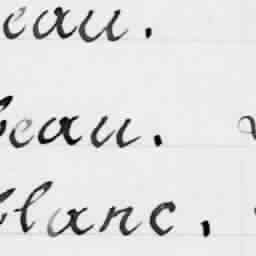 eau.
beau.
blanc.